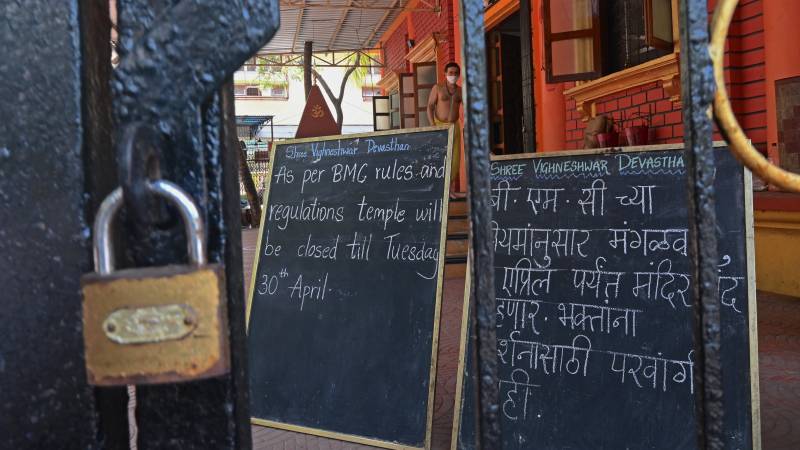 ॐ
Shree Vighneshwar Devasthan
As per BMC rules and
regulations temple will
be closed till Tuesday
30th April.
SHREE VIGHNESHWAR DEVASTHA
बी. एम. सी च्या
मंगळव
एप्रिल पर्यंत मंदिर
भक्तांना